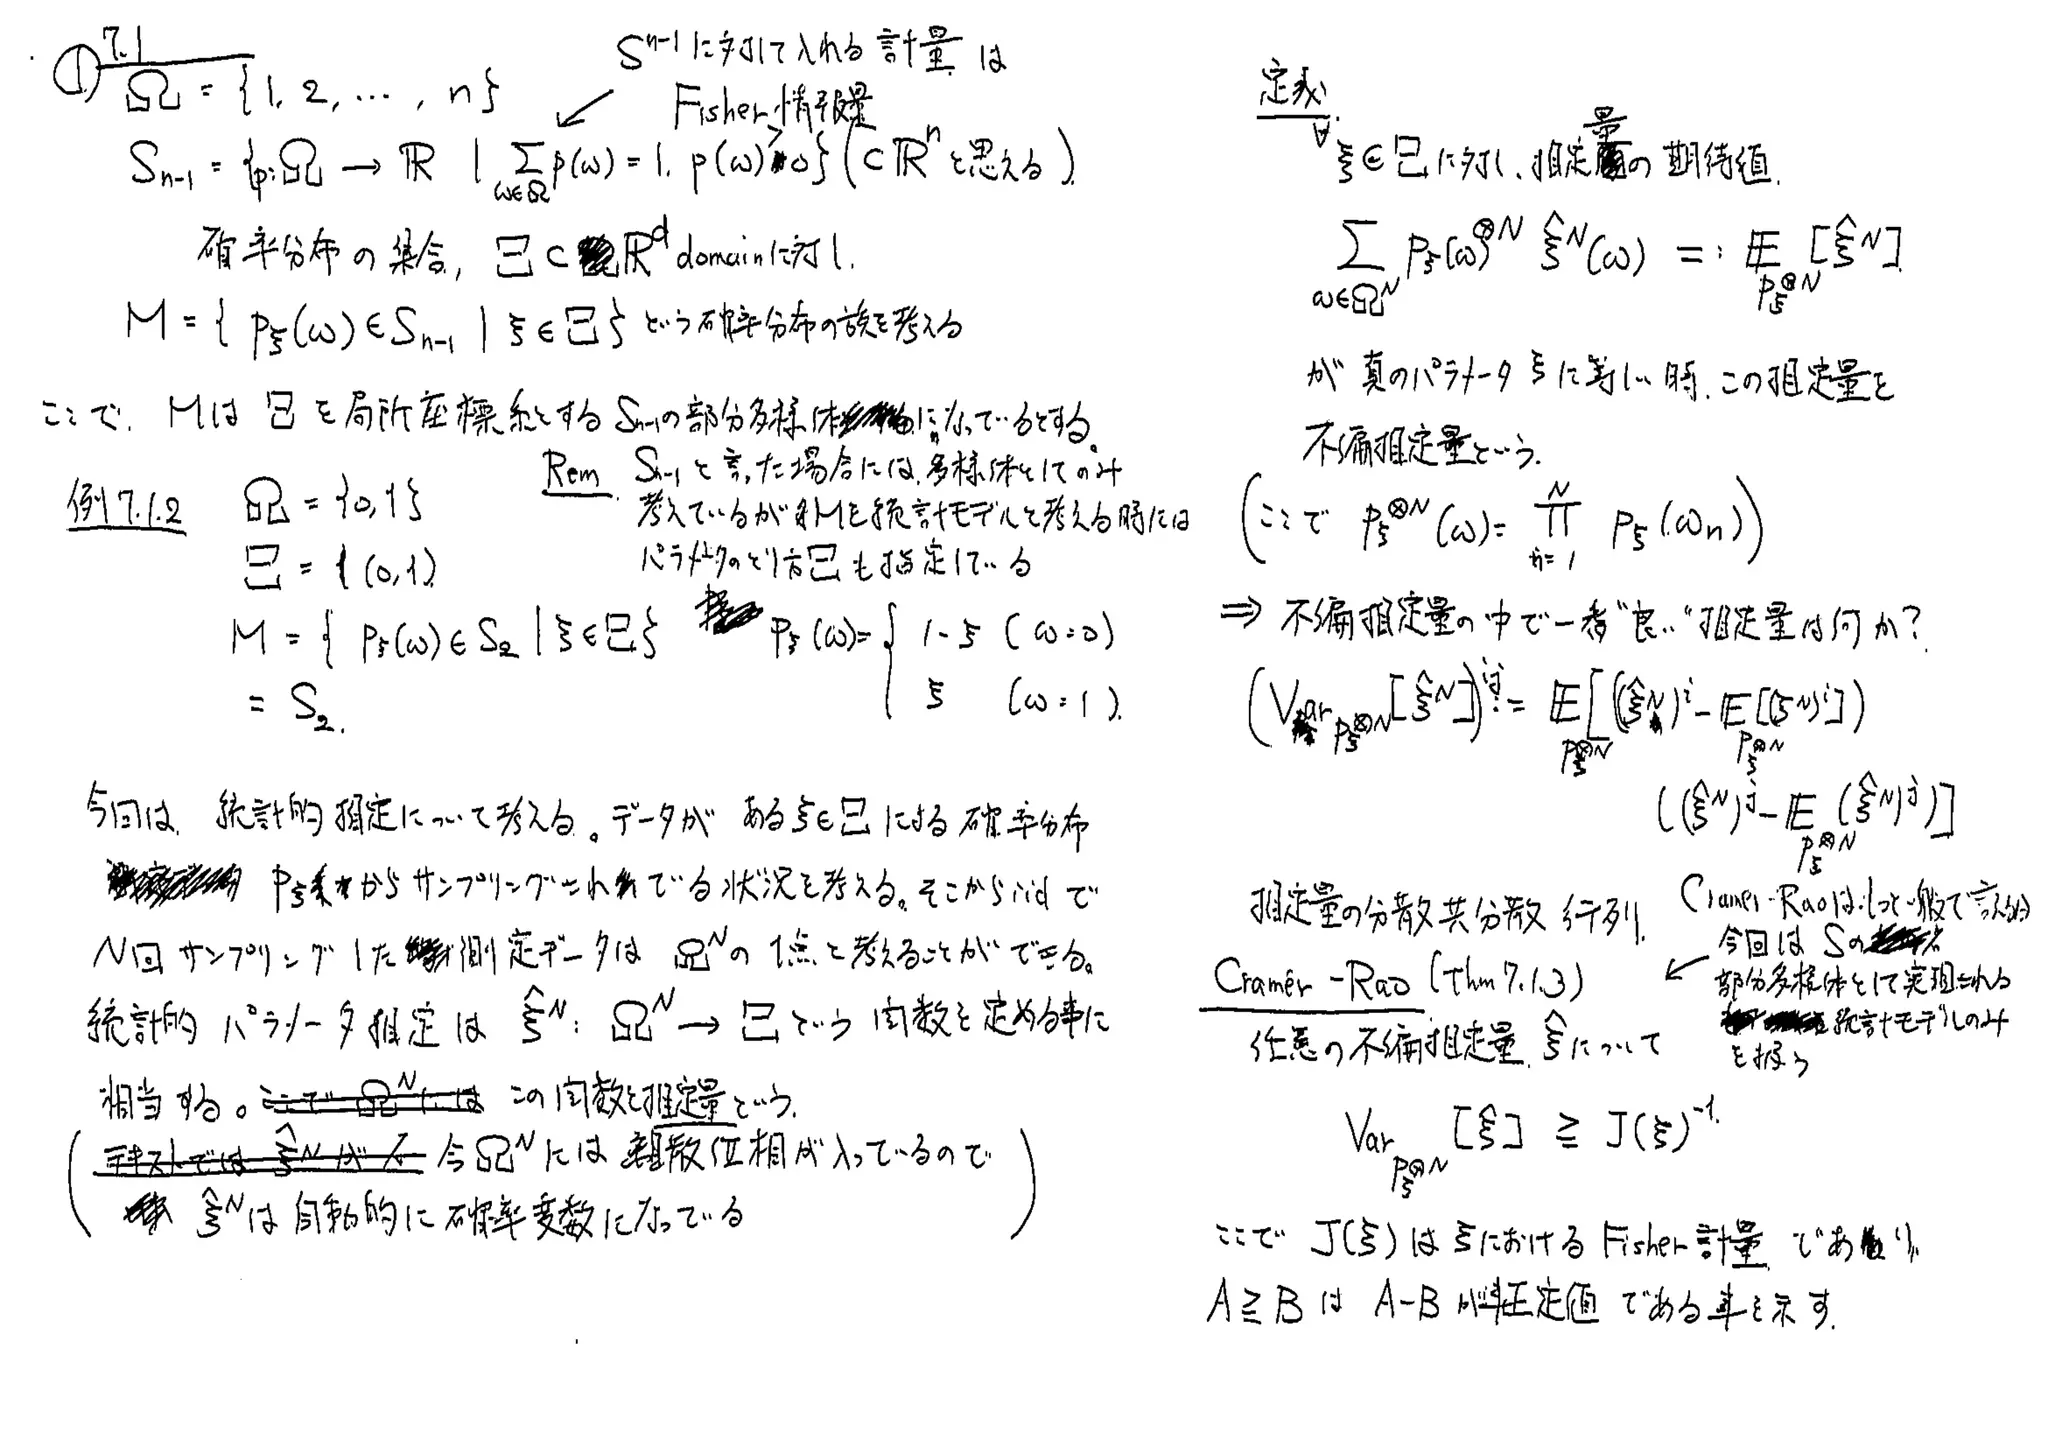 ① 7.1
Ω = {1, 2, …, n}
S^{n-1}に対して入れる計量は
Fisher情報量
S_{n-1} = {p:Ω → ℝ | Σ_{ω∈Ω} p(ω) = 1, p(ω) > 0} (⊂ ℝ^n と思える)
確率分布の集合, Ξ ⊂ ℝ^d domainに対し,
M = { p_ξ(ω) ∈ S_{n-1} | ξ ∈ Ξ } という確率分布の族を考える
ここで、MはΞを局所座標系とするS_{n-1}の部分多様体になっているとする。
Rem S_{n-1}と言った場合には、多様体としてのみ
考えているがMを統計モデルと考える時には
パラメータのとり方Ξも指定している
例7.1.2 Ω = {0,1}
Ξ = (0,1)
M = { p_ξ(ω) ∈ S_2 | ξ ∈ Ξ } p_ξ(ω) = { 1-ξ (ω=0)
ξ (ω=1).
= S_2.
今回は、統計的推定について考える。データがあるξ∈Ξによる確率分布
p_ξからサンプリングされている状況を考える。そこからiidで
N回サンプリングした測定データはΩ^Nの1点と考えることができる。
統計的パラメータ推定は ξ̂^N : Ω^N → Ξ という関数を定める事に
相当する。ここでΩ^Nには この関数を推定量という.
(テキストではξ̂^Nが 今Ω^Nには離散位相が入っているので
ξ̂^Nは自動的に確率変数になっている)
定義
∀ξ∈Ξに対し、推定量の期待値
Σ_{ω∈Ω^N} p_ξ(ω)^{⊗N} ξ̂^N(ω) =: 𝔼_{p_ξ^{⊗N}} [ξ̂^N]
が真のパラメータξに等しい時、この推定量を
不偏推定量という.
(ここで p_ξ^{⊗N}(ω) = Π_{n=1}^N p_ξ(ω_n))
⇒ 不偏推定量の中で一番"良い"推定量は何か?
(Var_{p_ξ^{⊗N}} [ξ̂^N])^{ij} := 𝔼_{p_ξ^{⊗N}} [((ξ̂^N)^i - 𝔼_{p_ξ^{⊗N}} [(ξ^N)^i])
((ξ̂^N)^j - 𝔼_{p_ξ^{⊗N}} (ξ̂^N)^j)]
推定量の分散共分散行列.
Cramér-Raoはもっと一般で言えるが
今回はSの
部分多様体として実現される
統計モデルのみ
を扱う
Cramér-Rao (Thm7.1.3)
任意の不偏推定量ξ̂について
Var_{p_ξ^{⊗N}} [ξ̂] ≧ J(ξ)^{-1}.
ここで J(ξ)はξにおけるFisher計量であり,
A≧BはA-Bが半正定値である事を示す.